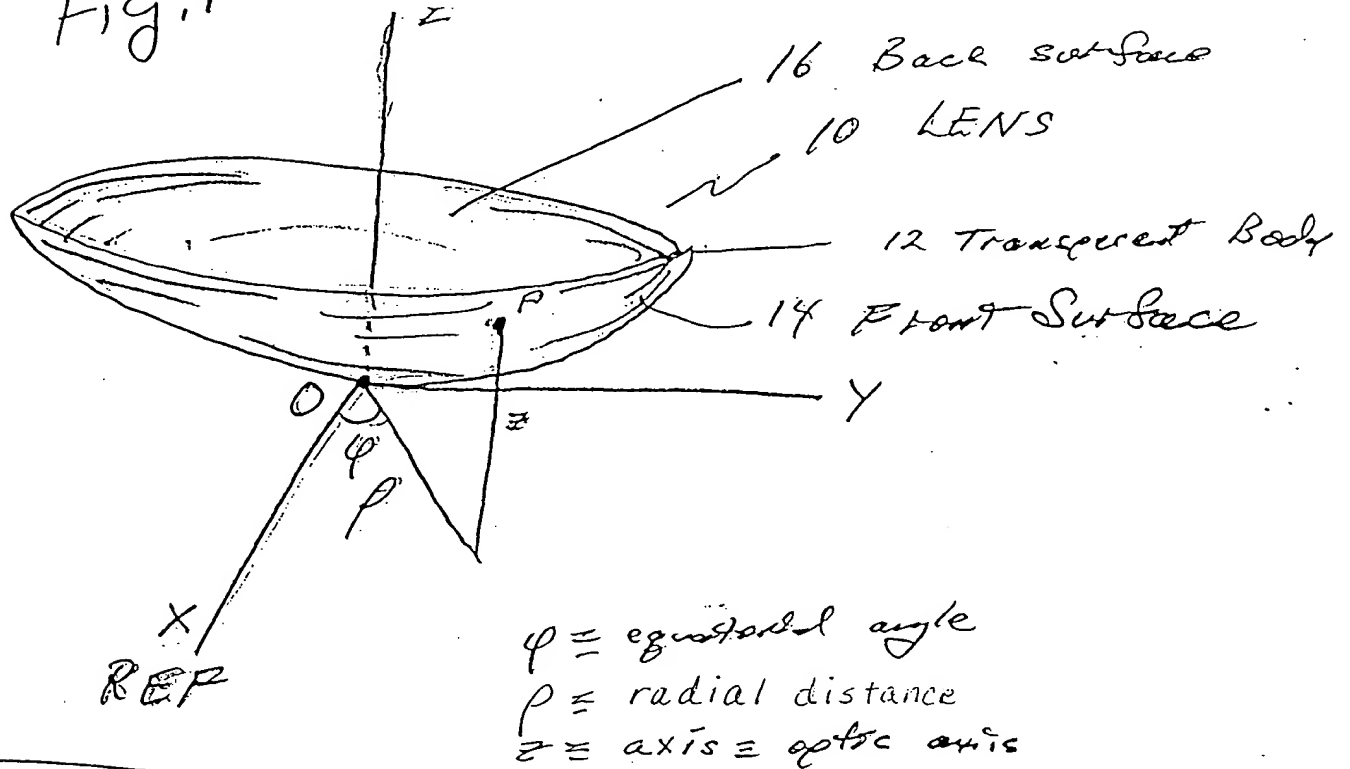 Fig. 1
Z
16 Back surface
10 LENS
12 Transparent Body
P
14 Front Surface
O
Y
z
φ
ρ
X
REF
φ ≡ equatorial angle
ρ ≡ radial distance
z ≡ axis ≡ optic axis